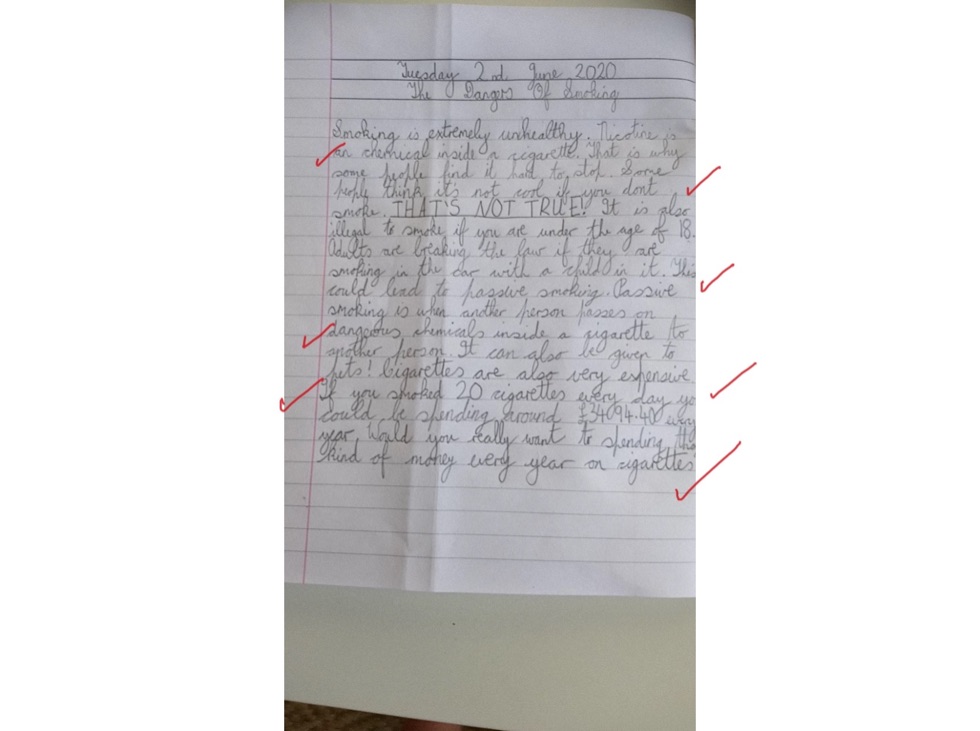 Tuesday 2nd June 2020
The Dangers Of Smoking
Smoking is extremely unhealthy. Nicotine is
an chemical inside a cigarette. That is why
some people find it hard to stop. Some
people think it's not cool if you dont
smoke. THAT'S NOT TRUE! It is also
illegal to smoke if you are under the age of 18.
Adults are breaking the law if they are
smoking in the car with a child in it. This
could lead to passive smoking. Passive
smoking is when another person passes on
dangeous chemicals inside a cigarette to
another person. It can also be given to
pets! Cigarettes are also very expensive.
If you smoked 20 cigarettes every day yo
could be spending around £34094.40 every
year. Would you really want to spending
kind of money every year on cigarettes